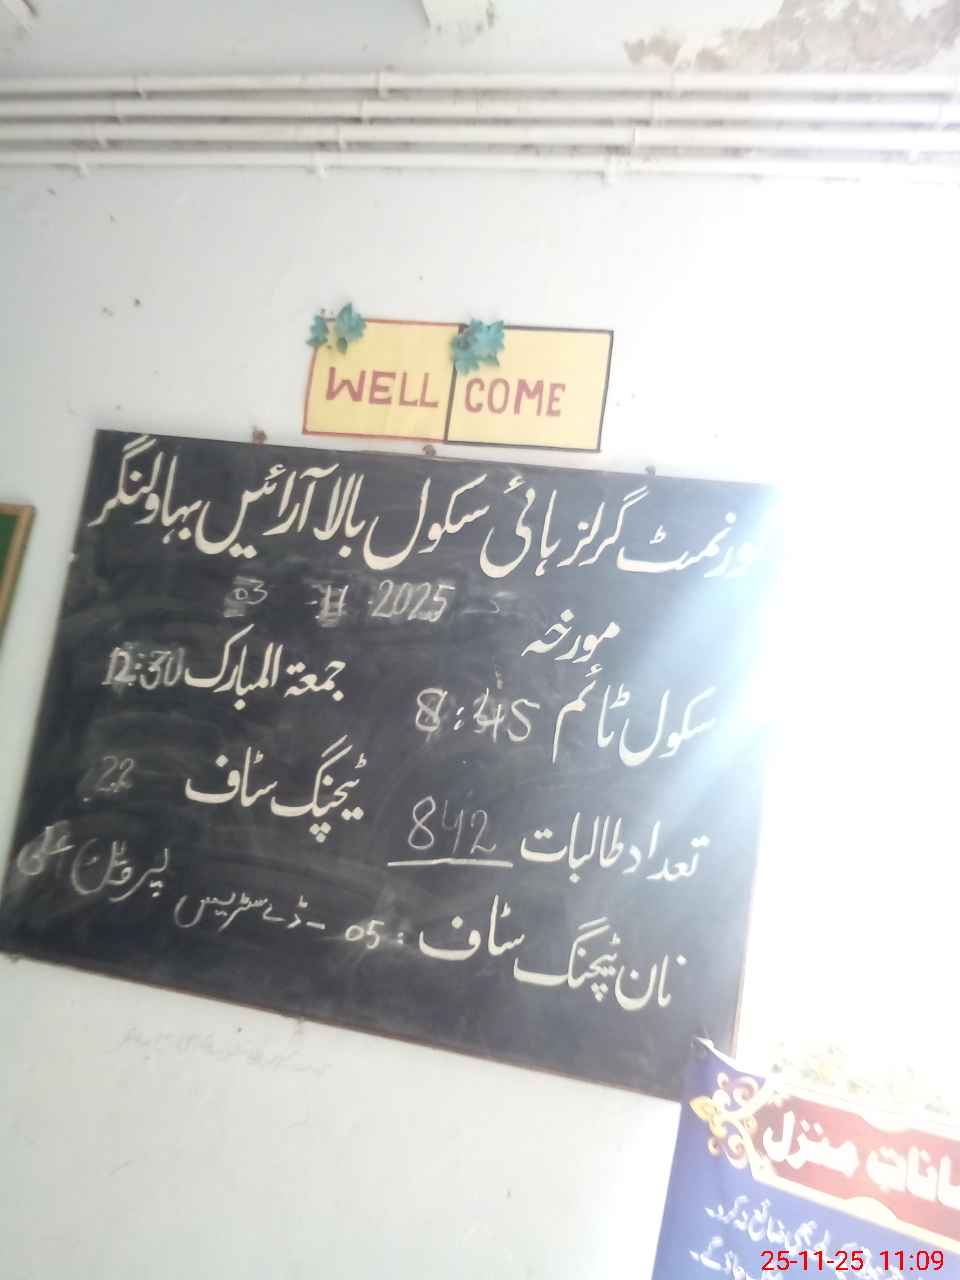 WELL COME
ورنمنٹ گرلز ہائی سکول بالا آرائیں بہاولنگر
مورخہ 03 11 2025
سکول ٹائم 8:45 جمعۃ المبارک 12:30
تعداد طالبات 842 ٹیچنگ سٹاف 22
نان ٹیچنگ سٹاف : 05 -
منزل
ضائع نہ کرو۔
25-11-25 11:09